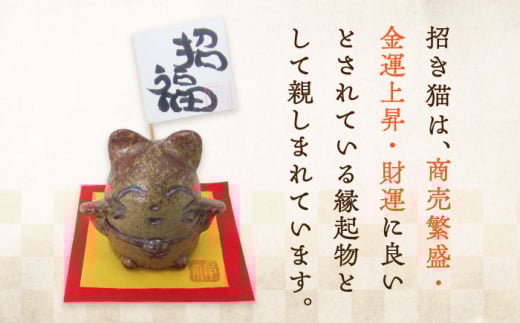 招福
招き猫は、商売繁盛・
金運上昇・財運に良い
とされている縁起物と
して親しまれています。